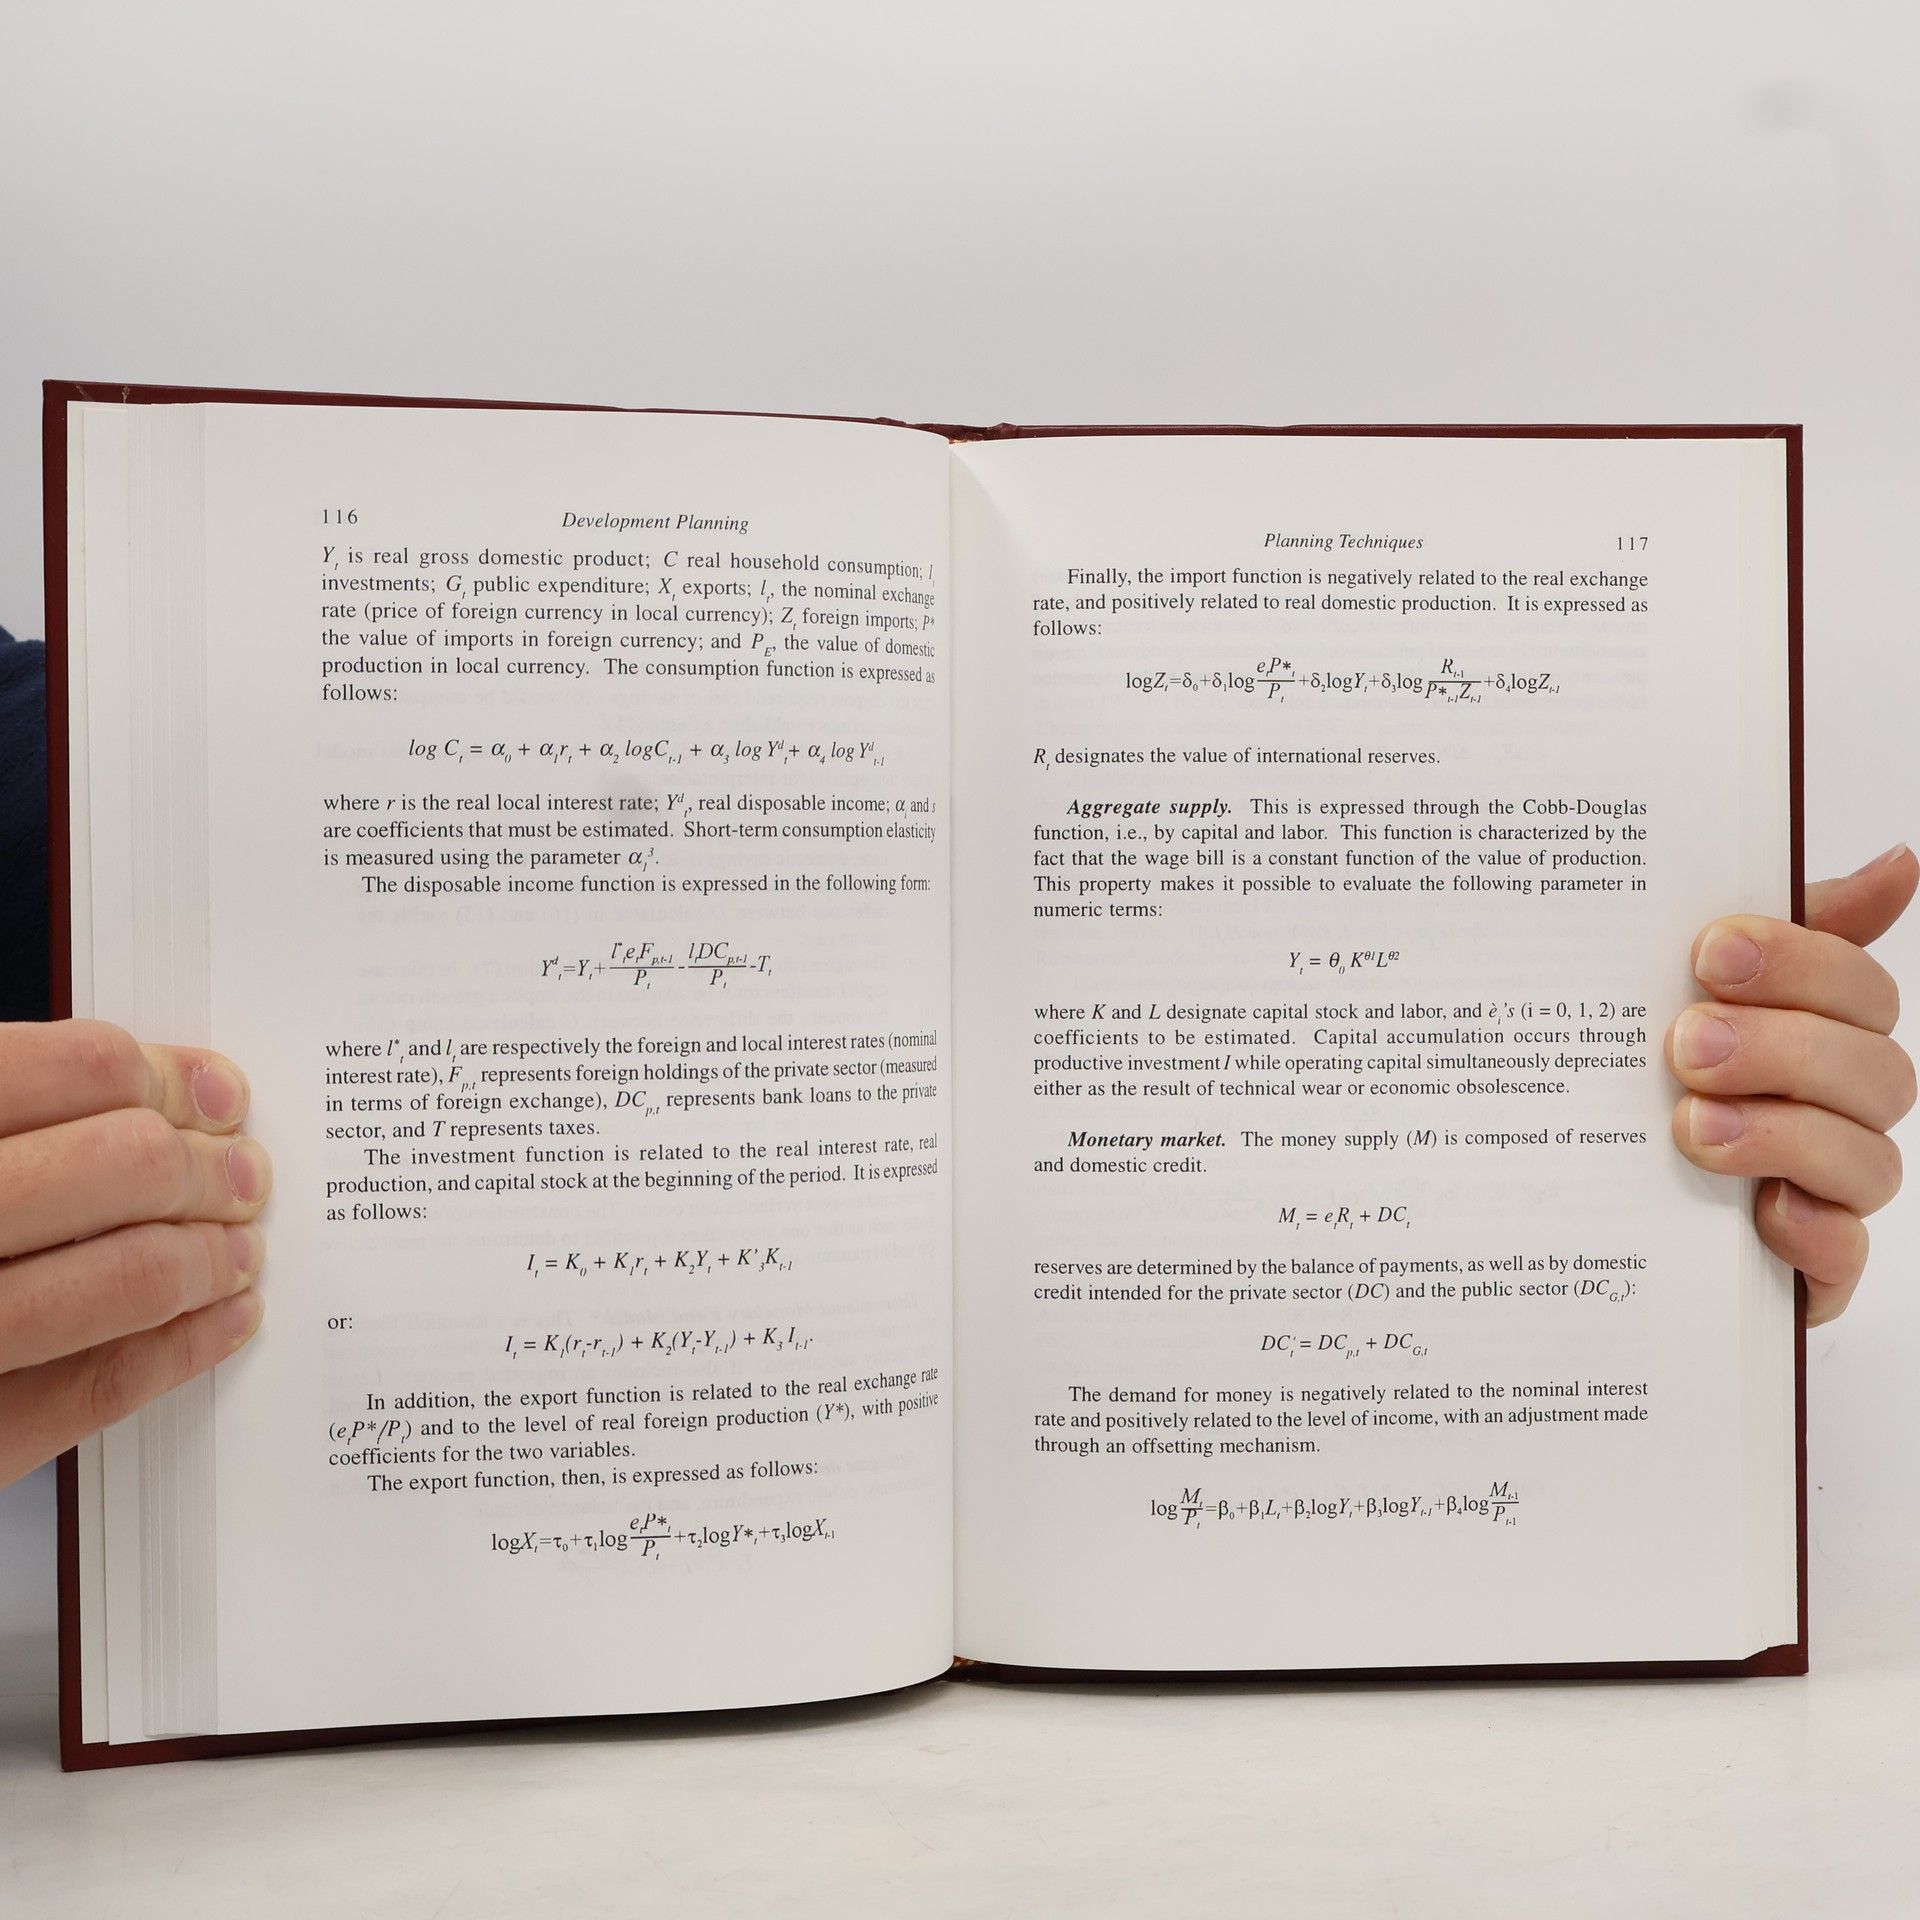 116 Development Planning
Y_t is real gross domestic product; C real household consumption; I_t
investments; G_t public expenditure; X_t exports; l_t, the nominal exchange
rate (price of foreign currency in local currency); Z_t foreign imports; P*
the value of imports in foreign currency; and P_E, the value of domestic
production in local currency. The consumption function is expressed as
follows:
log C_t = α_0 + α_1r_t + α_2 logC_t-1 + α_3 log Y^d_t + α_4 log Y^d_t-1
where r is the real local interest rate; Y^d_t, real disposable income; α_i and s
are coefficients that must be estimated. Short-term consumption elasticity
is measured using the parameter α_i^3.
The disposable income function is expressed in the following form:
Y^d_t=Y_t+ l*_te_tF_p,t-1/P_t - l_tDC_p,t-1/P_t -T_t
where l*_t and l_t are respectively the foreign and local interest rates (nominal
interest rate), F_p,t represents foreign holdings of the private sector (measured
in terms of foreign exchange), DC_p,t represents bank loans to the private
sector, and T represents taxes.
The investment function is related to the real interest rate, real
production, and capital stock at the beginning of the period. It is expressed
as follows:
I_t = K_0 + K_1r_t + K_2Y_t + K'_3K_t-1
or:
I_t = K_1(r_t-r_t-1) + K_2(Y_t-Y_t-1) + K_3 I_t-1.
In addition, the export function is related to the real exchange rate
(e_tP*_t/P_t) and to the level of real foreign production (Y*), with positive
coefficients for the two variables.
The export function, then, is expressed as follows:
logX_t=τ_0+τ_1log e_tP*_t/P_t +τ_2logY*_t+τ_3logX_t-1
Planning Techniques 117
Finally, the import function is negatively related to the real exchange
rate, and positively related to real domestic production. It is expressed as
follows:
logZ_t=δ_0+δ_1log e_tP*_t/P_t +δ_2logY_t+δ_3log R_t-1/P*_t-1Z_t-1 +δ_4logZ_t-1
R_t designates the value of international reserves.
Aggregate supply. This is expressed through the Cobb-Douglas
function, i.e., by capital and labor. This function is characterized by the
fact that the wage bill is a constant function of the value of production.
This property makes it possible to evaluate the following parameter in
numeric terms:
Y_t = θ_0 K^θ1L^θ2
where K and L designate capital stock and labor, and è_i's (i = 0, 1, 2) are
coefficients to be estimated. Capital accumulation occurs through
productive investment I while operating capital simultaneously depreciates
either as the result of technical wear or economic obsolescence.
Monetary market. The money supply (M) is composed of reserves
and domestic credit.
M_t = e_tR_t + DC_t
reserves are determined by the balance of payments, as well as by domestic
credit intended for the private sector (DC) and the public sector (DC_G,t):
DC_t = DC_p,t + DC_G,t
The demand for money is negatively related to the nominal interest
rate and positively related to the level of income, with an adjustment made
through an offsetting mechanism.
log M_t/P_t =β_0+β_1L_t+β_2logY_t+β_3logY_t-1+β_4log M_t-1/P_t-1